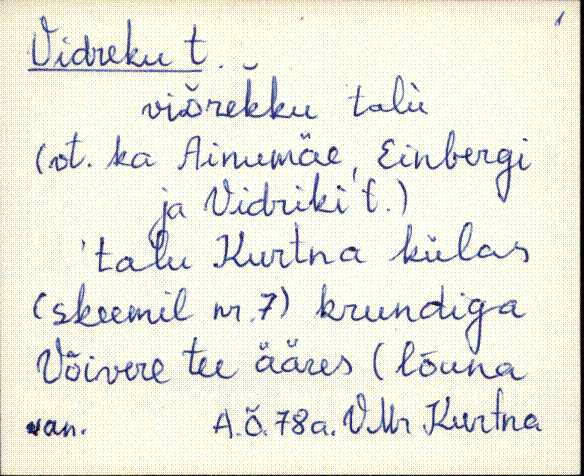 1
Vidreku t.
viŏrekku talù
(vt. ka Ainumäe, Einbergi
ja Vidriki t.)
talu Kurtna külas
(skeemil nr. 7) krundiga
Võivere tee ääres (lõuna
van. A.Õ. 78a. VMr Kurtna